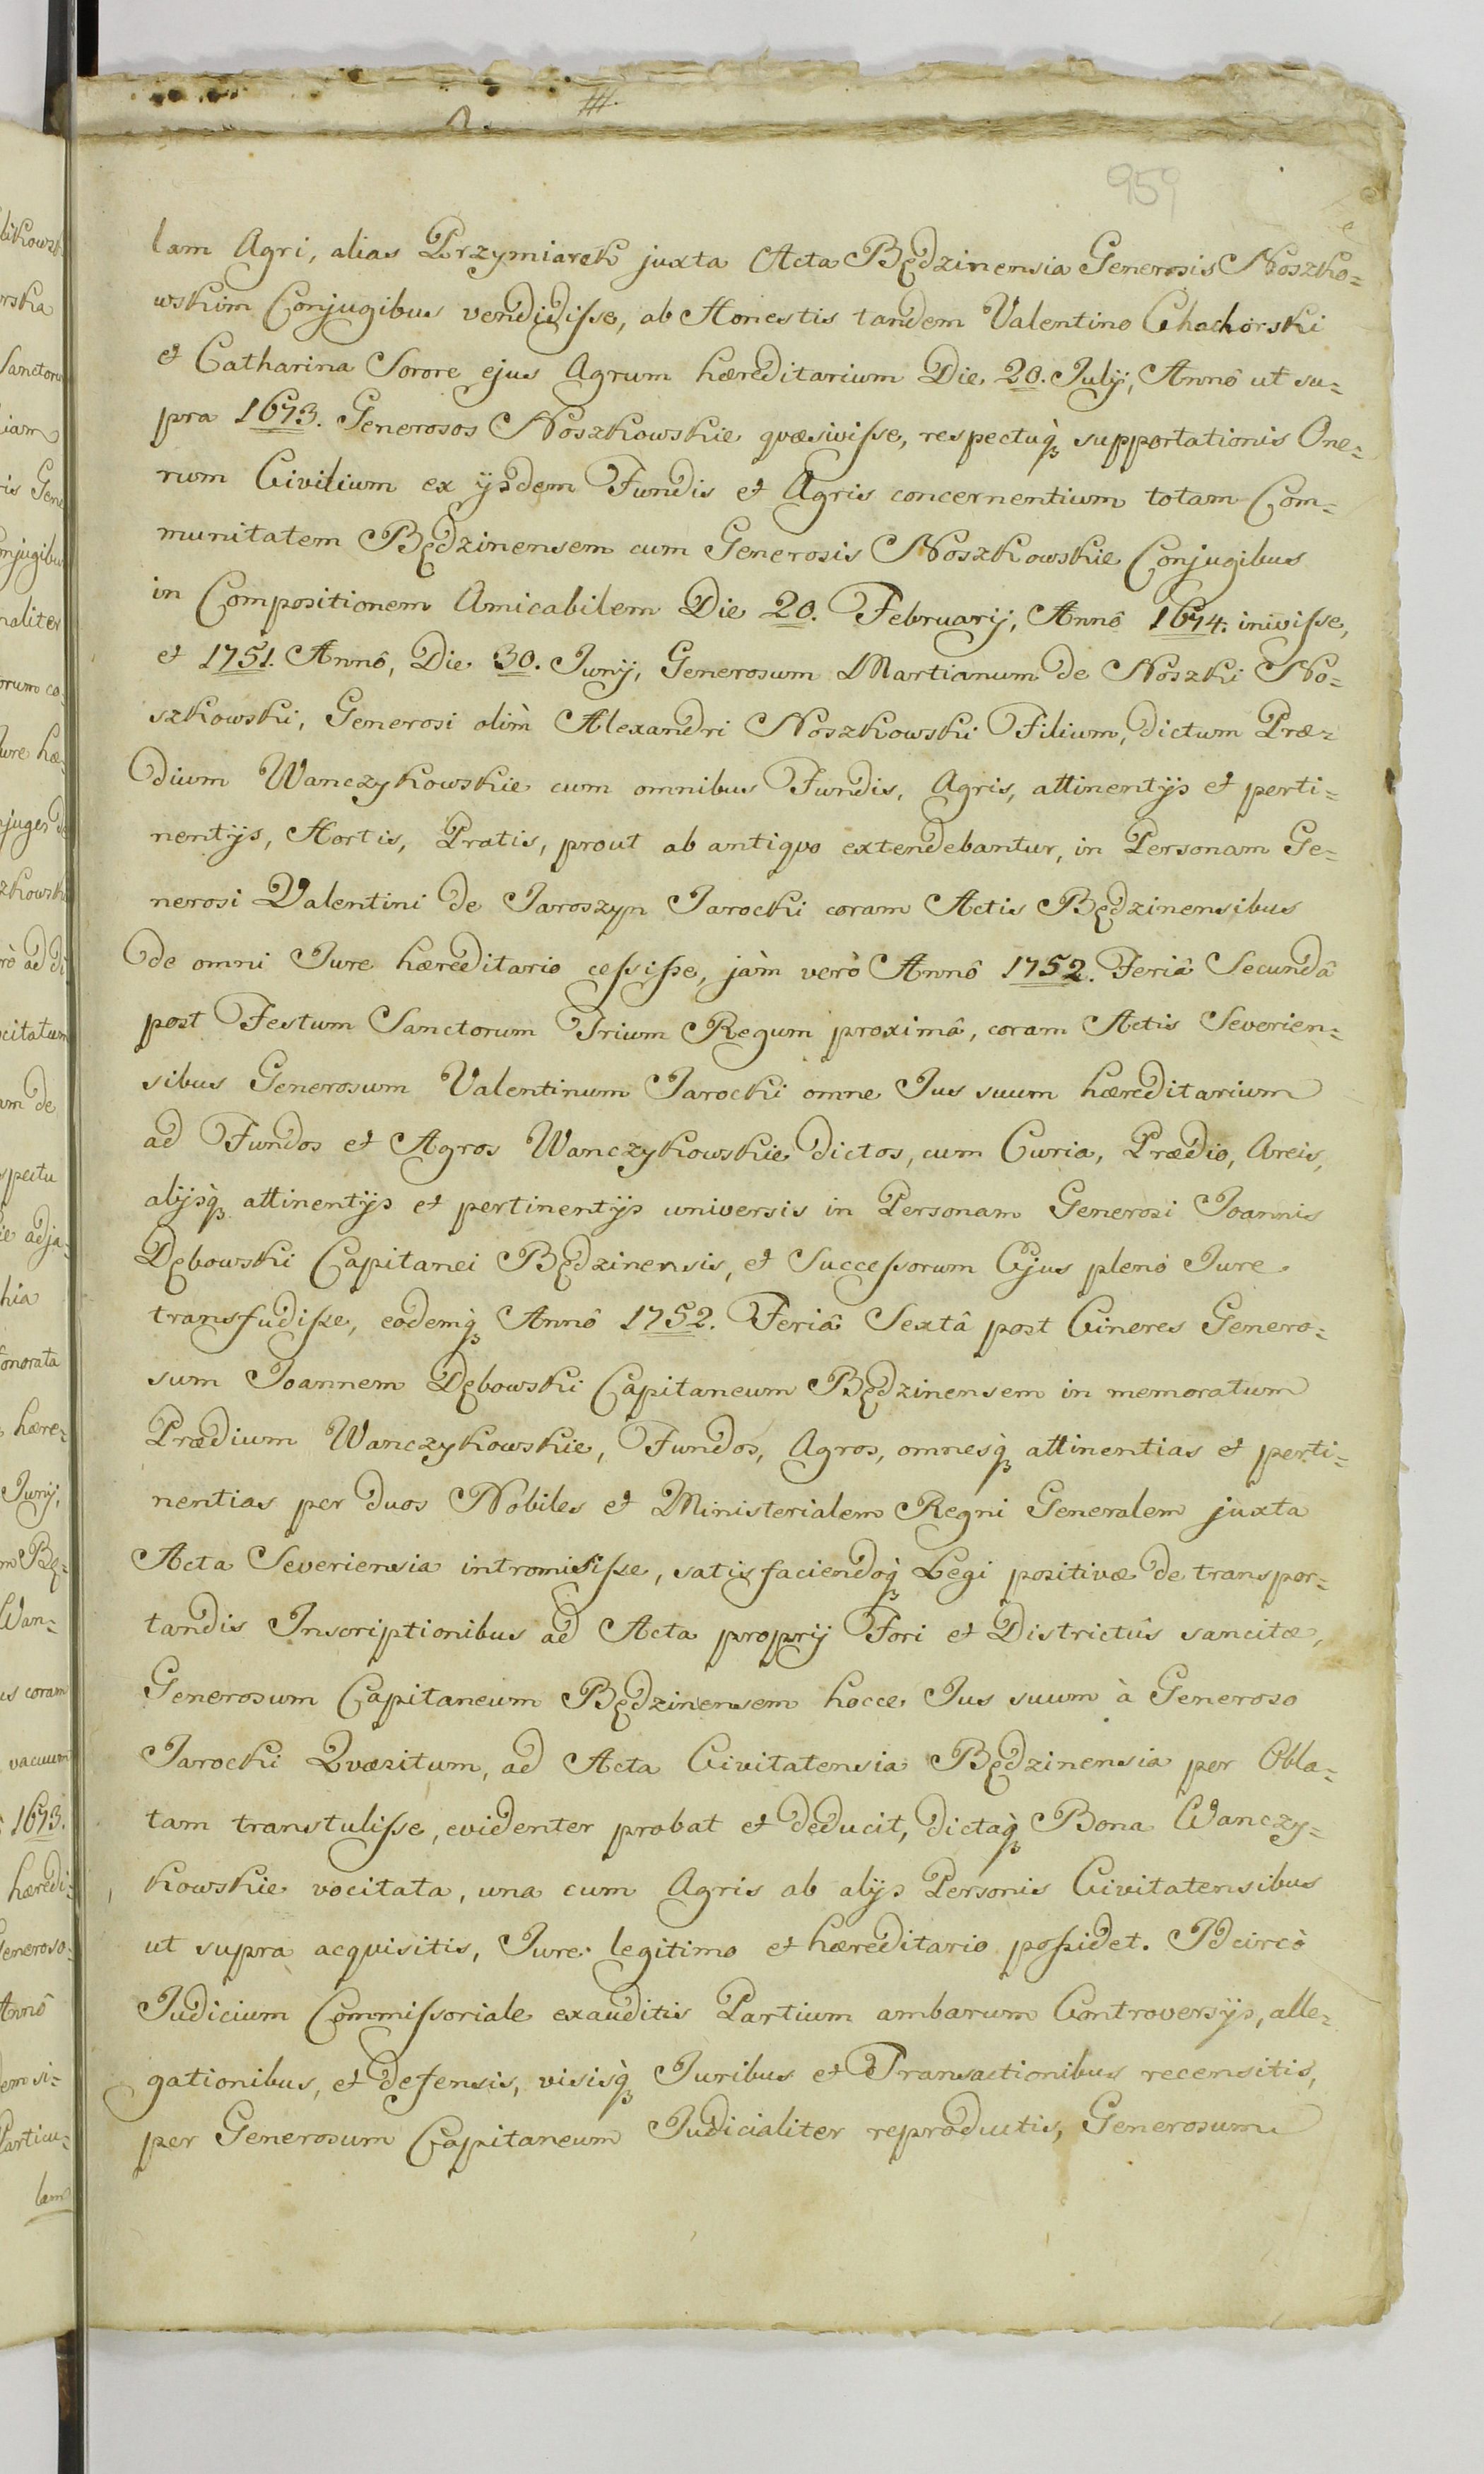 959
lam Agri, alias Przymiarek juxta Acta Będzinensia Generosis Noszko=
wskim Conjugibus vendidiſse, ab Honestis tandem Valentino Chachorski
et Catharina Sorore ejus Agrum hæreditarium Die 20. Julij, Annô ut su=
pra 1673. Generosos Noszkowskie qvæsiviſse, respectuq̀ꝫ supportationis One=
rum Civilium ex ijsdem Fundis et Agris concernentium totam Com=
munitatem Będzinensem cum Generosis Noszkowskie Conjugibus
in Compositionem Amicabilem Die 20. Februarij, Annô 1674. iniviſse,
et 1751. Annô, Die 30. Junij, Generosum Martianum de Noszki No=
szkowski, Generosi olìm Alexandri Noszkowski Filium, dictum Præ=
dium Wanczykowskie cum omnibus Fundis, Agris, attinentijs et perti=
nentijs, Hortis, Pratis, prout ab antiqvo extendebantur, in Personam Ge=
nerosi Valentini de Jaroszyn Jarocki coram Actis Będzinensibus
de omni Jure hæreditario ceſsiſse, jàm verò Annô 1752. Feriâ Secundâ
post Festum Sanctorum Trium Regum proximâ, coram Actis Severien=
sibus Generosum Valentinum Jarocki omne Jus suum hæreditarium
ad Fundos et Agros Wanczykowskie dictos, cum Curia, Prædio, Areis,
alijsq̀ꝫ attinentijs et pertinentijs universis in Personam Generosi Joannis
Dębowski Capitanei Będzinensis, et Succeſsorum Ejus pleno Jure
transfudiſse, eodemq̀ꝫ Annô 1752. Feriâ Sextâ post Cineres Genero=
sum Joannem Dębowski Capitaneum Będzinensem in memoratum
Prædium Wanczykowskie, Fundos, Agros, omnesq̀ꝫ attinentias et perti=
nentias per duos Nobiles et Ministerialem Regni Generalem juxta
Acta Severiensia intromisiſse, satisfaciendoq̀ꝫ Legi positivæ de transpor=
tandis Inscriptionibus ad Acta proprij Fori et Districtûs sancitæ,
Generosum Capitaneum Będzinensem hocce Jus suum à Generoso
Jarocki Qvæsitum, ad Acta Civitatensia Będzinensia per Obla=
tam transtuliſse, evidenter probat et deducit, dictaq̀ꝫ Bona Wanczy=
kowskie vocitata, una cum Agris ab alijs Personis Civitatensibus
ut supra acqvisitis, Jure legitimo et hæreditario poſsidet. Idcircò
Judicium Commiſsoriale exauditis Partium ambarum Controversijs, alle=
gationibus, et defensis, visisq̀ꝫ Juribus et Transactionibus recensitis,
per Generosum Capitaneum Judicialiter reproductis, Generosum